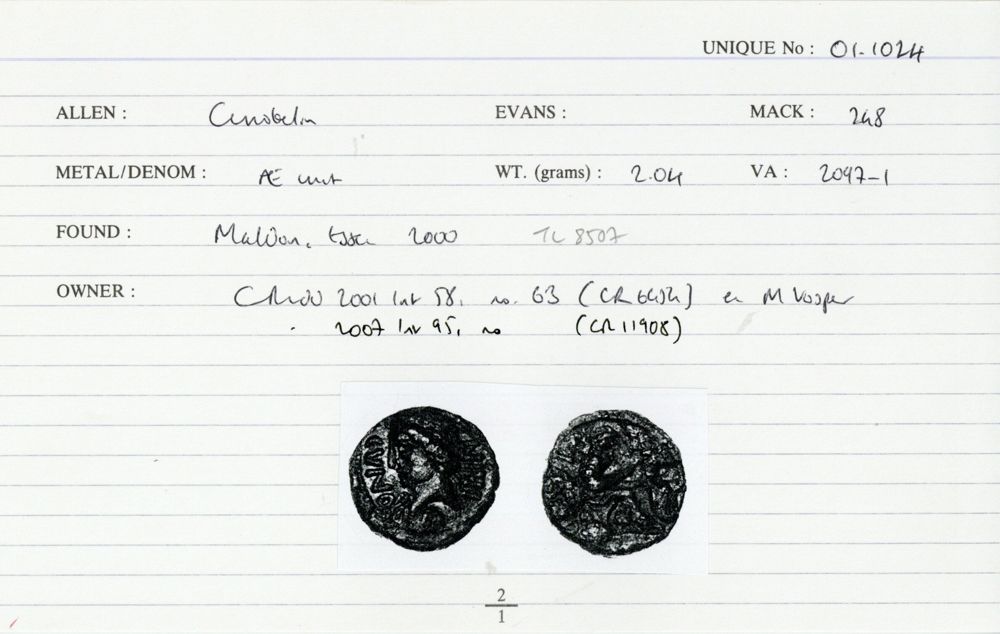 UNIQUE No : 01-1024
ALLEN : Cunobelin EVANS : MACK : 248
METAL/DENOM : Æ unit WT. (grams) : 2.04 VA : 2097-1
FOUND : Maldon, Essex 2000 TL 8507
OWNER : 2001 list 58, no. 63 (CR ex M Vosper
2007 list 95, no (CR 11908)
2
1